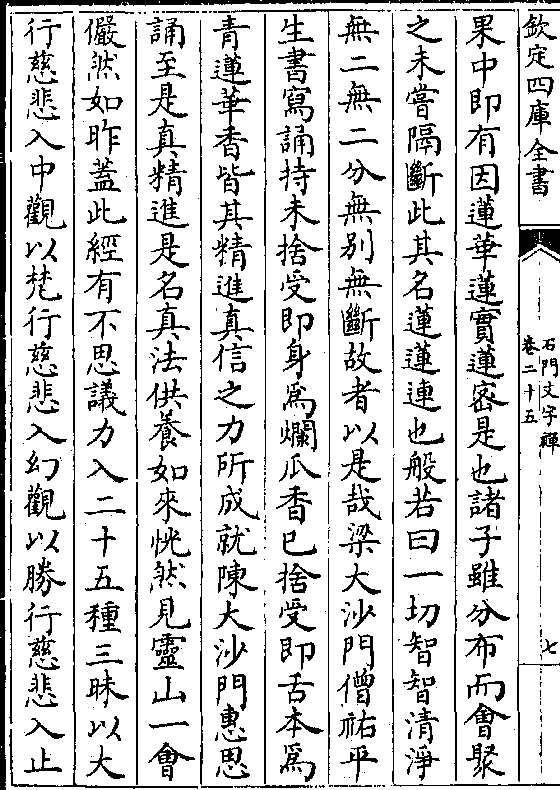 欽定四庫全書
石門文字禪
卷二十五
七
果中即有因蓮華蓮實蓮密是也諸子雖分布而會聚
之未嘗隔斷此其名蓮蓮連也般若曰一切智智清淨
無二無二分無別無斷故者以是哉梁大沙門僧祐平
生書寫誦持未捨受即身為爛瓜香已捨受即舌本為
青蓮華香皆其精進真信之力所成就陳大沙門惠思
誦至是真精進是名真法供養如來恍然見靈山一會
儼然如昨蓋此經有不思議力入二十五種三昧以大
行慈悲入中觀以梵行慈悲入幻觀以勝行慈悲入止